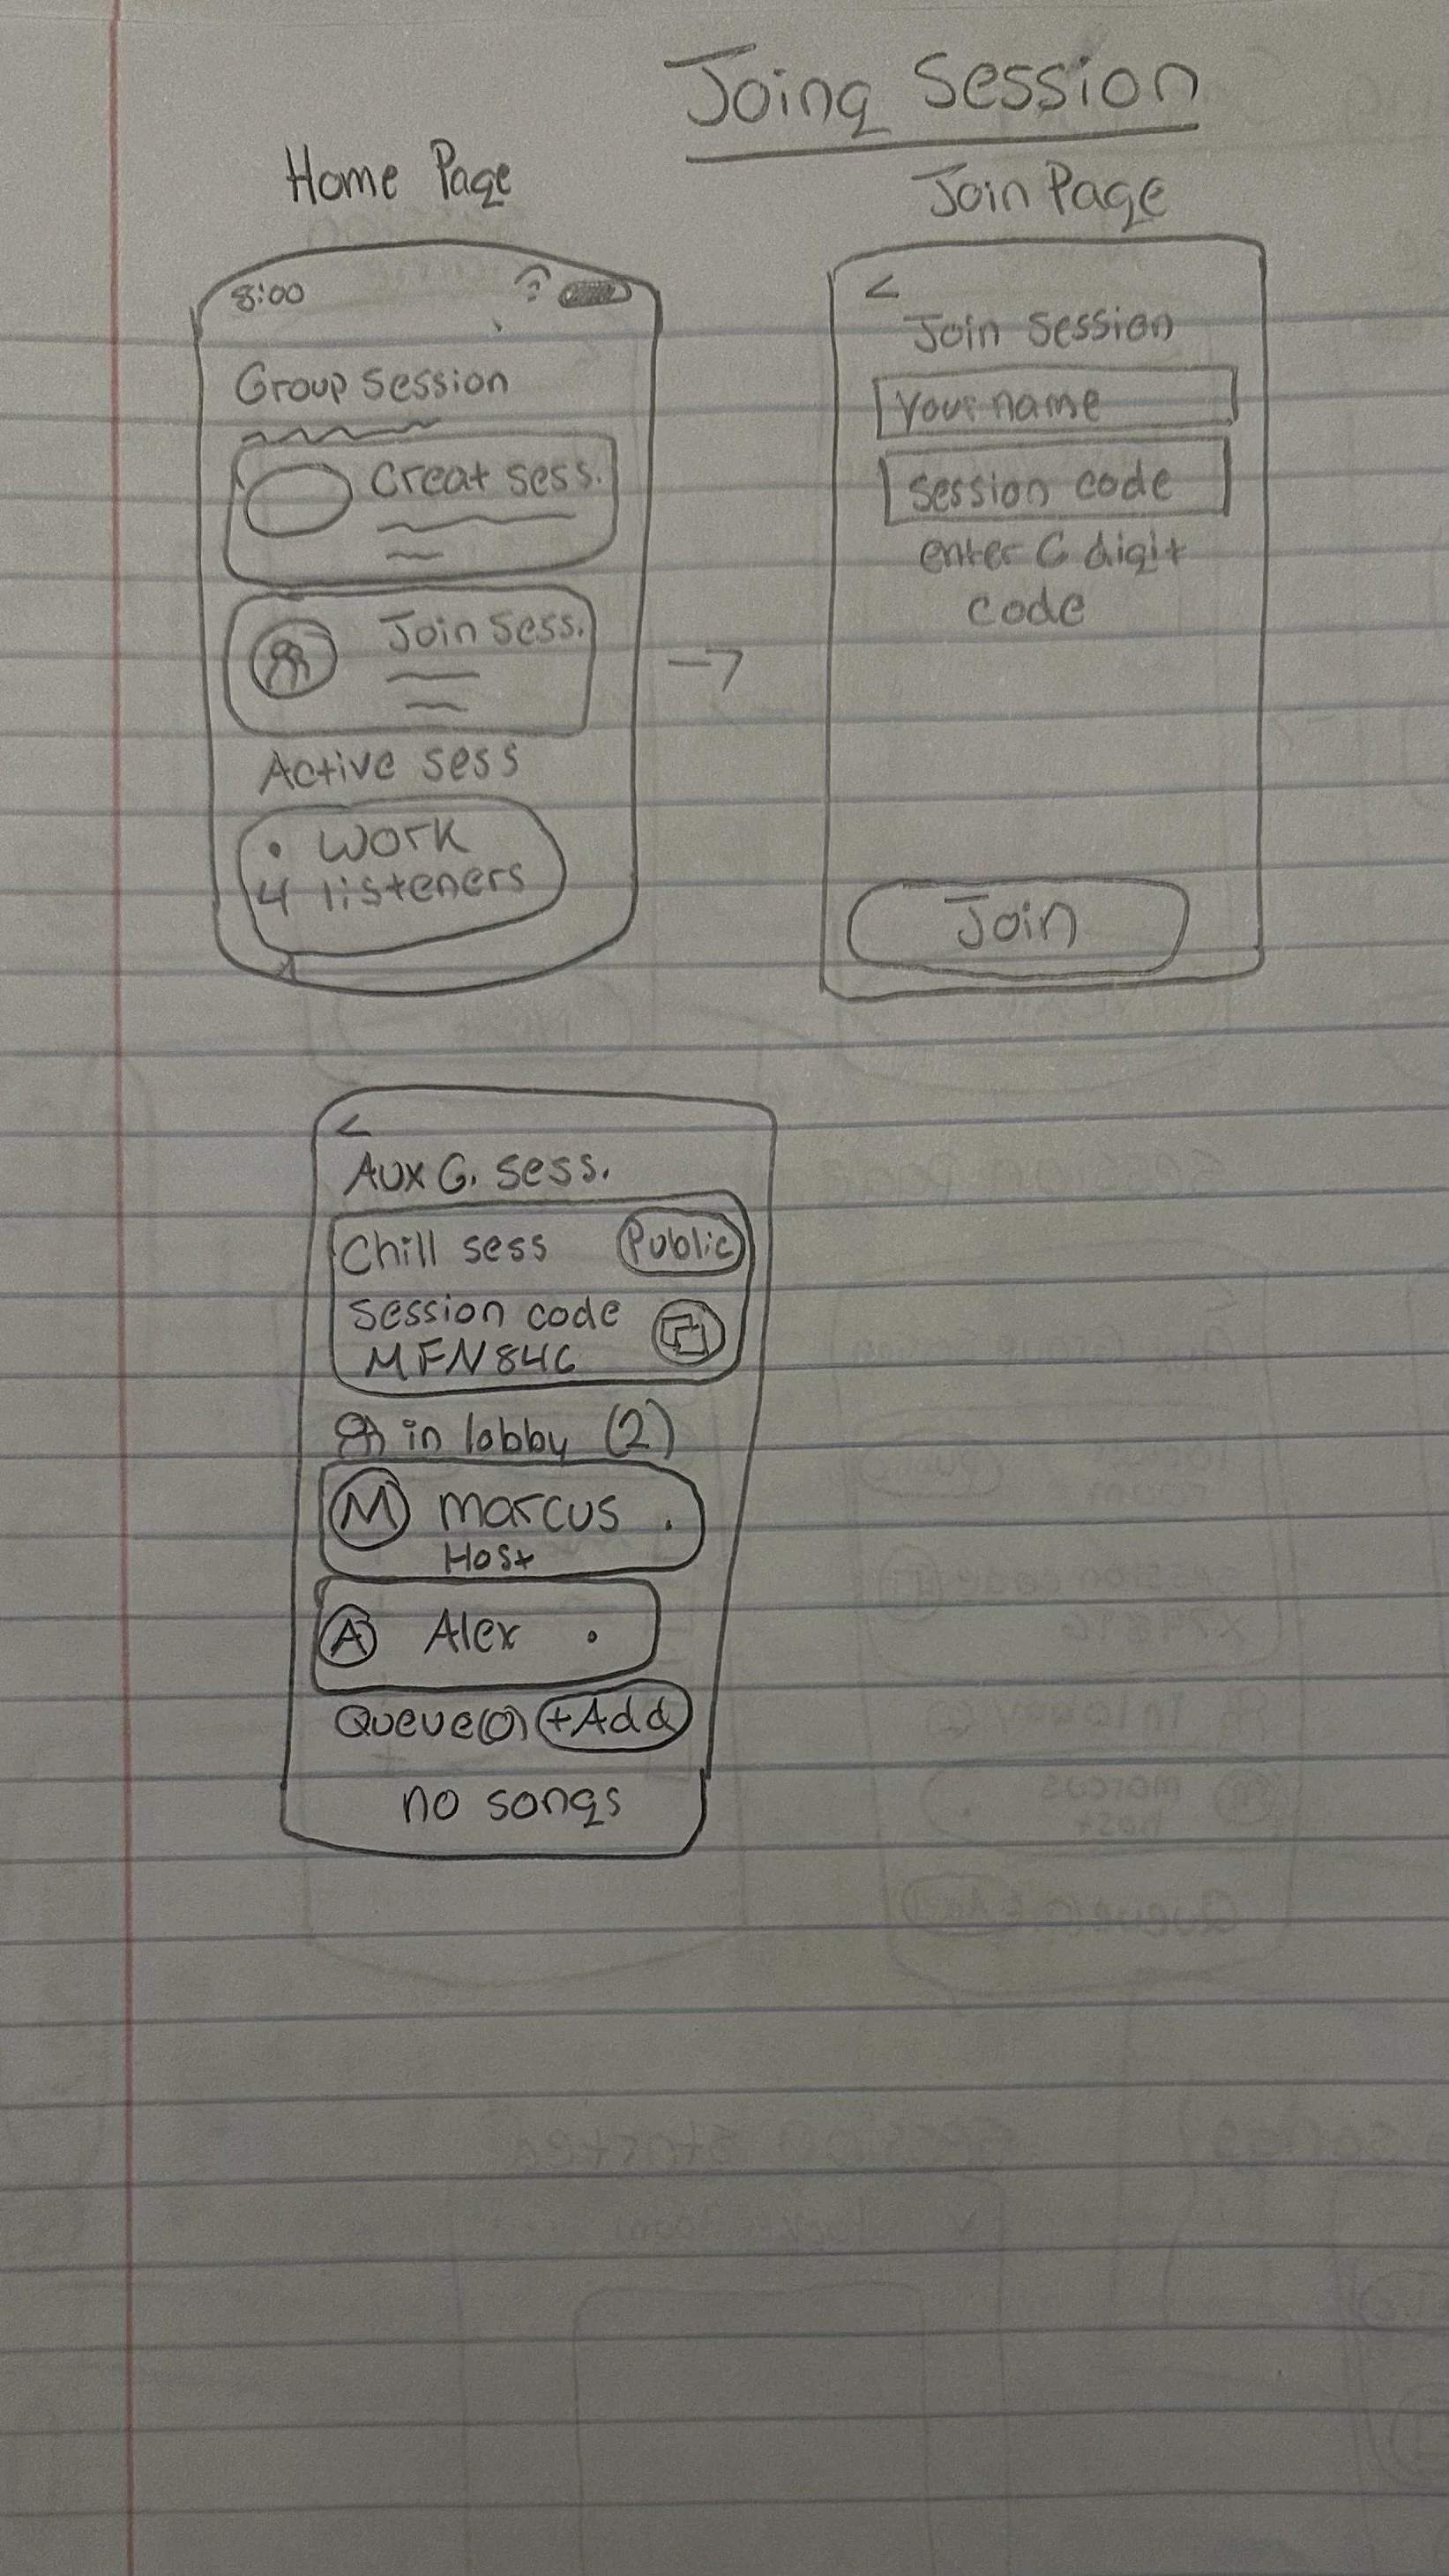 Joing Session
Home Page
8:00
Group session
Creat sess.
Join sess.
Active sess
• Work
4 listeners
Join Page
<
Join session
Your name
session code
enter 6 digit
code
Join
<
Aux G. sess.
Chill sess Public
session code
MFN846
in lobby (2)
M marcus .
Host
A Alex .
Queue(0) +Add
no songs